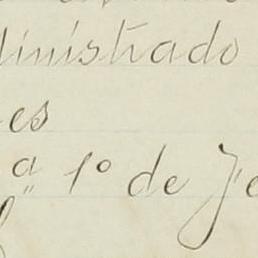 inistrado
es
a 1º de Je